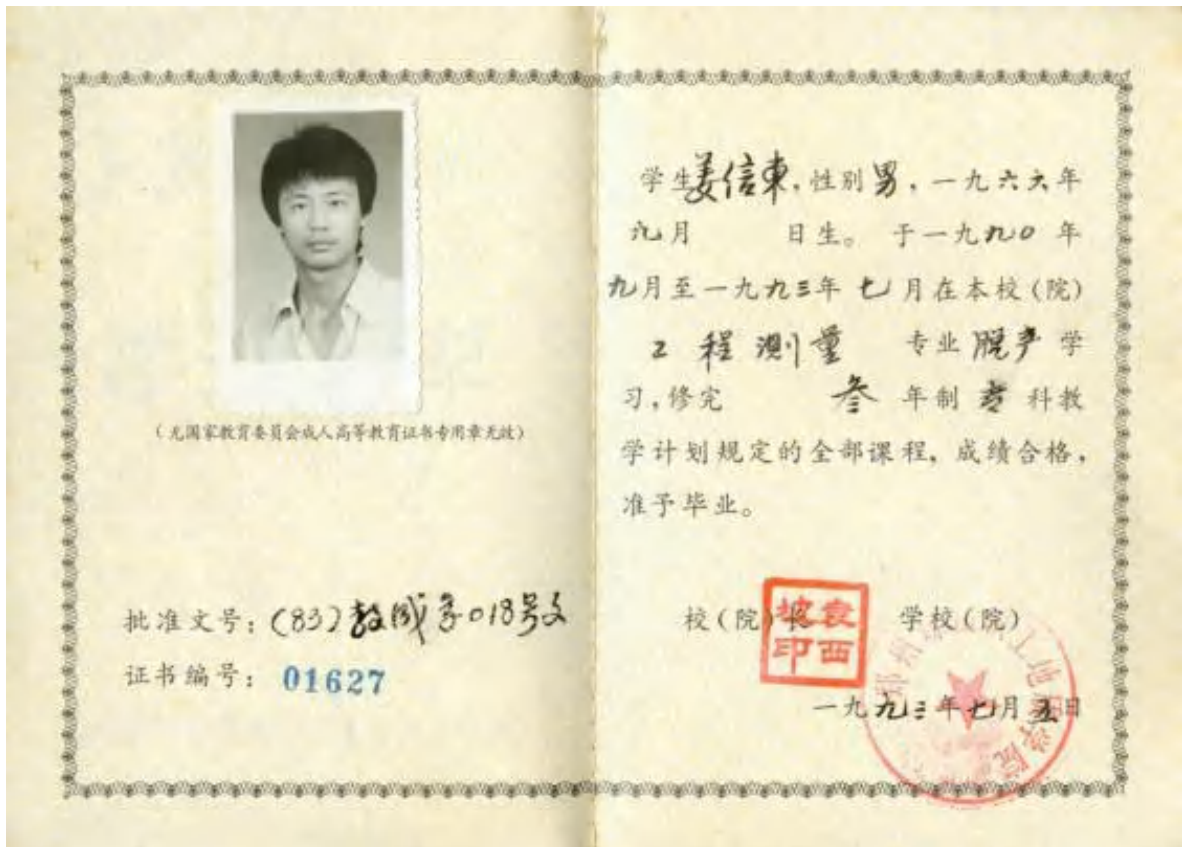 (无国家教育委员会成人高等教育证书专用章无效)
批准文号:(83)教成字018号文
证书编号:01627
学生姜信東,性别男,一九六六年
九月 日生。于一九九〇年
九月至一九九三年七月在本校(院)
工程测量 专业脱产学
习,修完 叁年制专科教
学计划规定的全部课程,成绩合格,
准予毕业。
校(院)长 学校(院)
袁西坡印
郑州 工地 学院
一九九三年七月五日